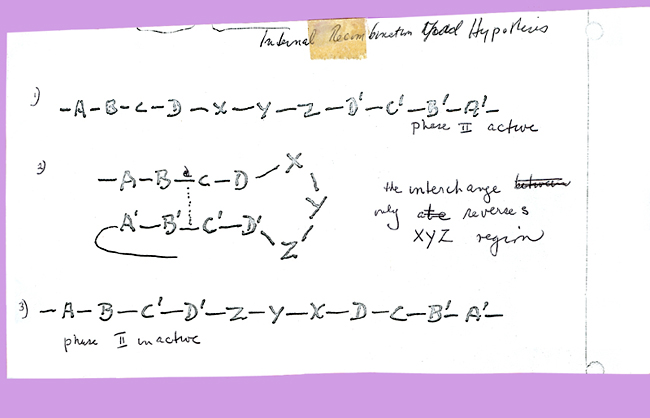 Internal Recombination Hypothesis
1) -A-B-C-D-X-Y-Z-D'-C'-B'-A'-
phase II active
3) -A-B-C-D-X
Y
A'-B'-C'-D'-Z
the interchange between
only reverses
XYZ region
3) -A-B-C'-D'-Z-Y-X-D-C-B'-A'-
phase II inactive